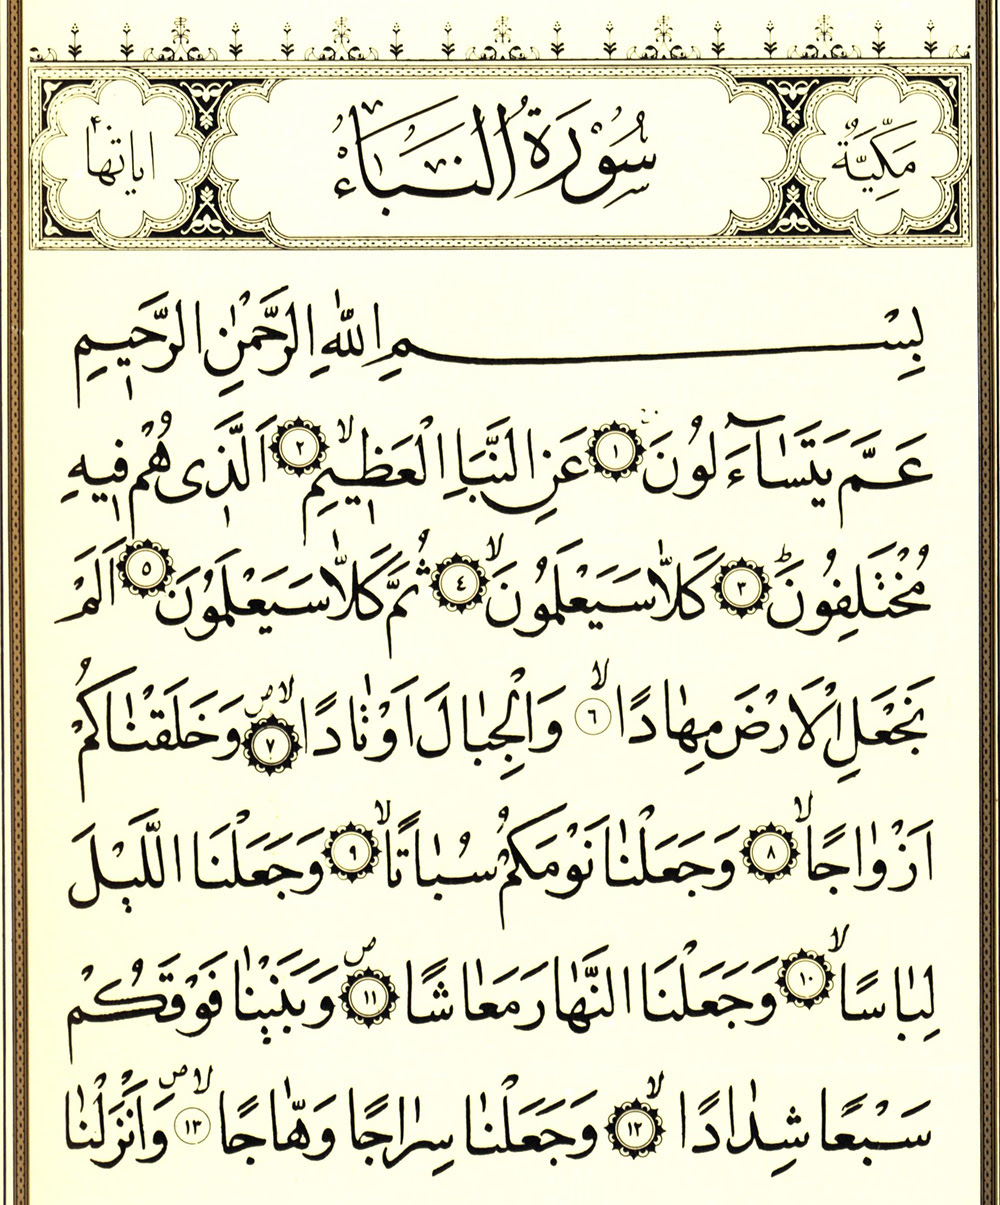 مَكِّيَّةٌ سُورَةُ النَّبَاءِ اياتها ٤٠
بِسْمِ اللّٰهِ الرَّحْمٰنِ الرَّحٖيمِ
عَمَّ يَتَسَٓاءَلُونَ ١ عَنِ النَّبَاِ الْعَظٖيمِ لا ٢ اَلَّذٖى هُمْ فٖيهِ
مُخْتَلِفُونَ ط ٣ كَلَّا سَيَعْلَمُونَ لا ٤ ثُمَّ كَلَّا سَيَعْلَمُونَ ٥ اَلَمْ
نَجْعَلِ الْاَرْضَ مِهَادًا لا ٦ وَالْجِبَالَ اَوْتَادًا لا ص ٧ وَخَلَقْنَاكُمْ
اَزْوَاجًا لا ٨ وَجَعَلْنَا نَوْمَكُمْ سُبَاتًا لا ٩ وَجَعَلْنَا اللَّيْلَ
لِبَاسًا لا ١٠ وَجَعَلْنَا النَّهَارَ مَعَاشًا ص ١١ وَبَنَيْنَا فَوْقَكُمْ
سَبْعًا شِدَادًا لا ١٢ وَجَعَلْنَا سِرَاجًا وَهَّاجًا لا ص ١٣ وَاَنْزَلْنَا